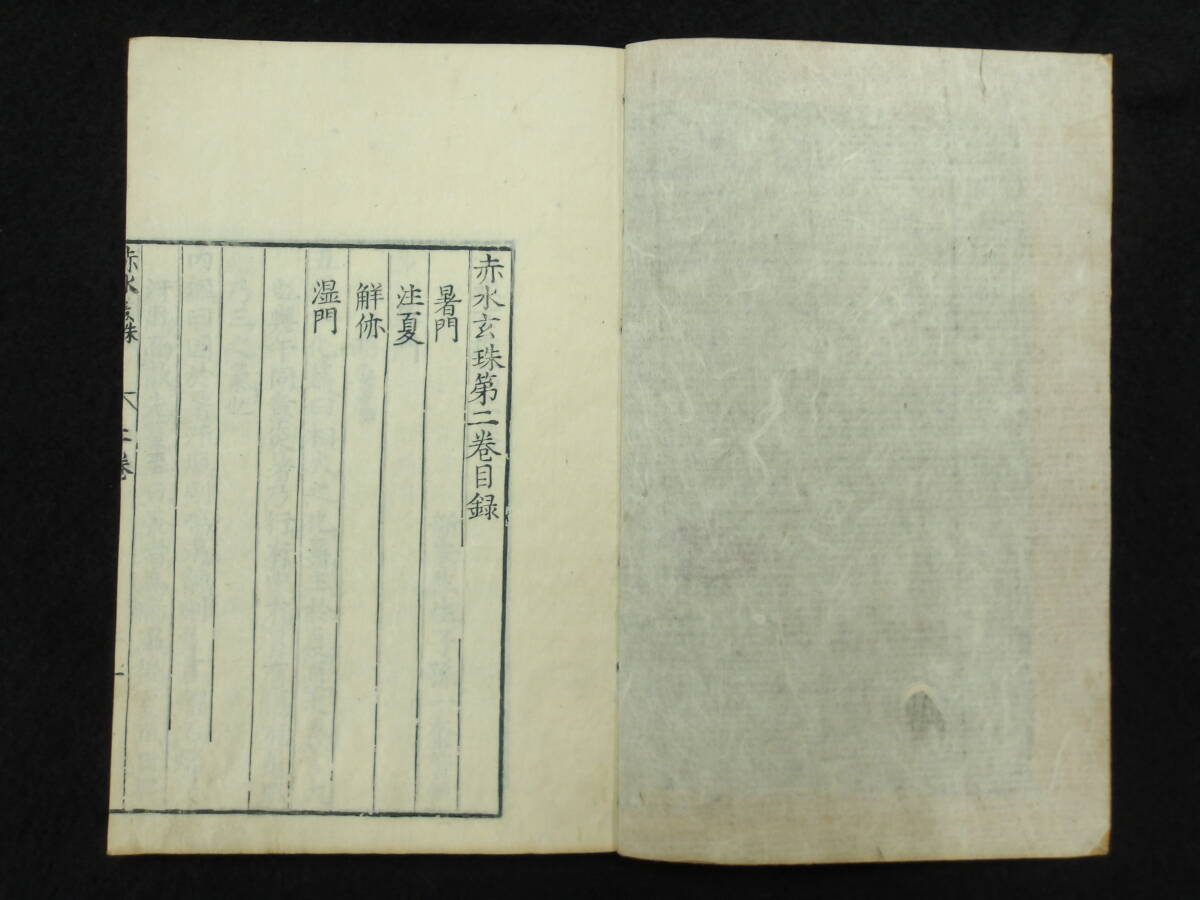 赤水玄珠第二卷目録
暑門
注夏
解㑊
湿門
赤水玄珠 二卷 一